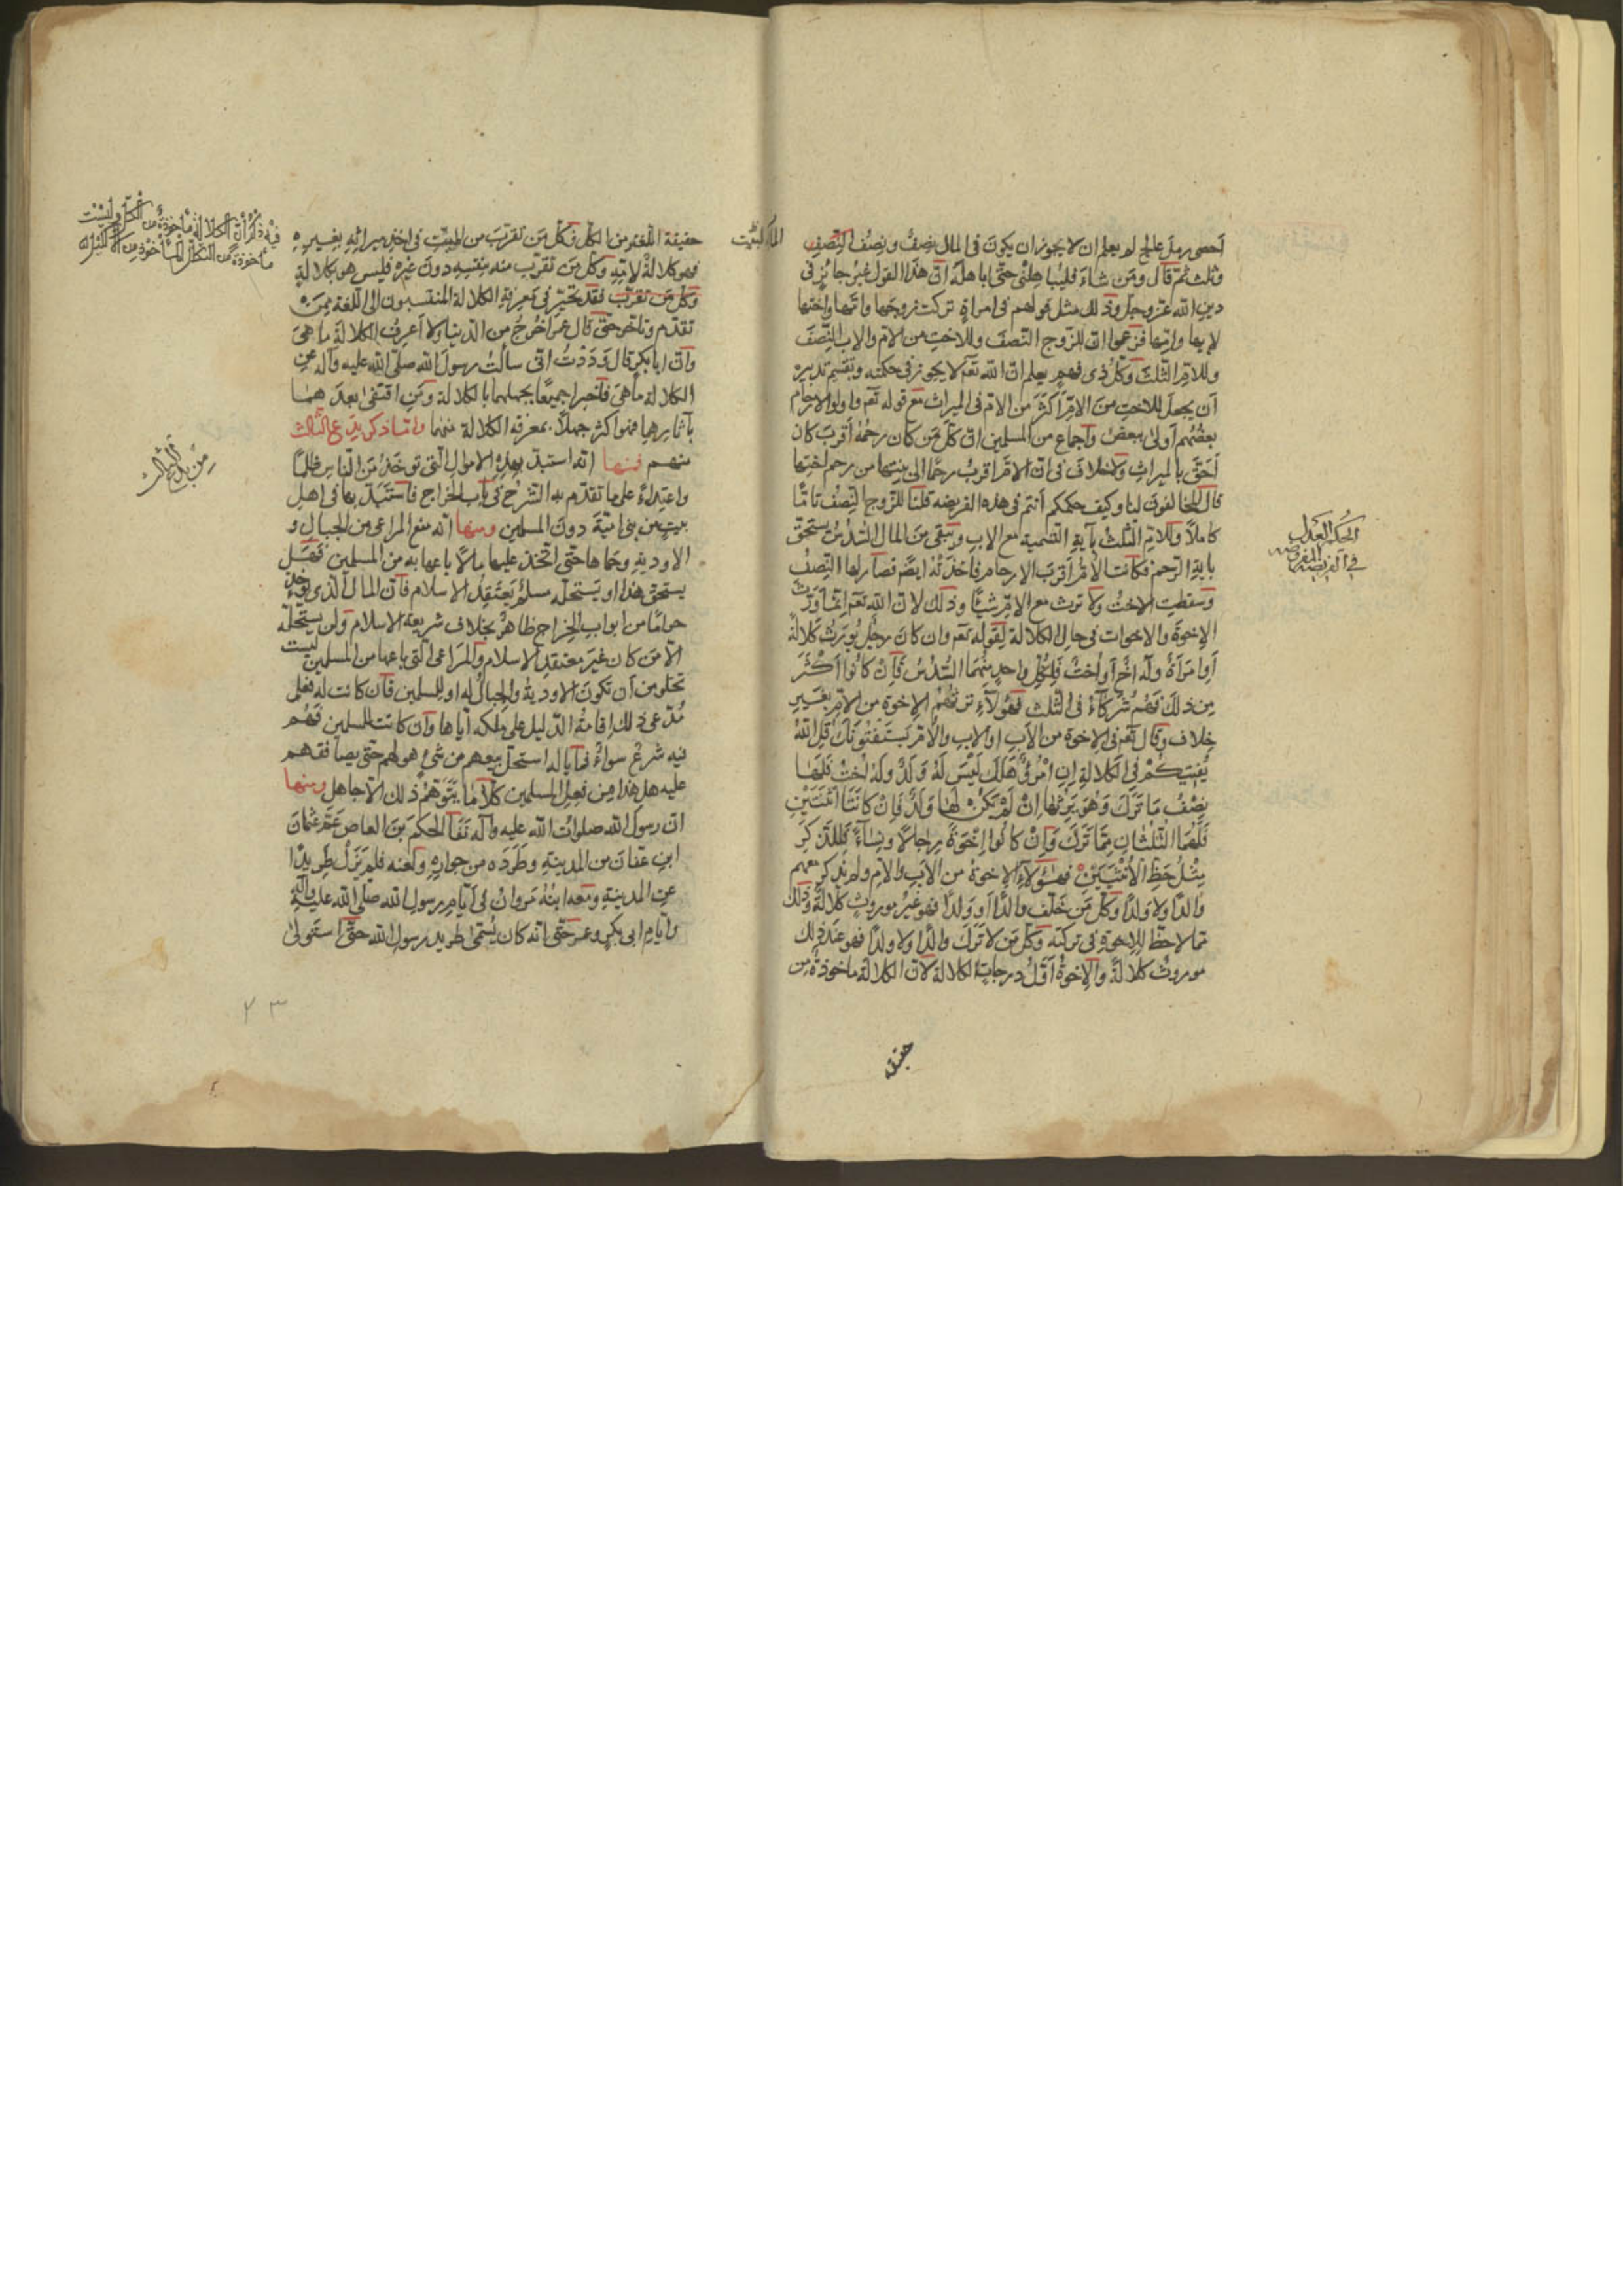 احصى رمل عالج لم يعلم ان لا يجوز ان يكون في المال نصف ونصف النصف
وثلث ثم قال ومن شاء فليباهلني حتى اباهله ان هذا القول غير جائز في
دين الله عز وجل وذلك مثل قولهم في امراة تركت زوجها وامها واختها
لابيها وامها فزعموا ان للزوج النصف وللاخت من الام والاب النصف
وللام الثلث وكل ذى فهم يعلم ان الله تعم لا يجوز في حكمته وتقسيم تدبيره
ان يجعل للاخت من الام اكثر من الام في الميراث مع قوله تعم واولو الارحام
بعضهم اولى ببعض واجماع من المسلمين ان كل من كان رحمه اقرب كان
احق بالميراث ولا خلاف في ان الام اقرب رحما الى بنتها من رحم اختها
قال المخالفون لنا وكيف حكمكم انتم في هذه الفريضه قلنا للزوج النصف تاما
كاملا وللام الثلث بآية التسمية مع الاب وبقى من المال السدس يستحق
باية الرحم فكانت الام اقرب الارحام فاخذته ايضم فصار لها النصف
وسقطت الاخت ولا ترث مع الام شيئا وذلك لان الله تعم انما ورث
الاخوة والاخوات في حال الكلالة لقوله تعم وان كان رجل يورث كلالة
او امرأة وله اخ او اخت فلكل واحد منهما السدس فان كانوا اكثر
من ذلك فهم شركاء في الثلث فهؤلاء ترثهم الاخوة من الام بغير
خلاف وقال تعم في الاخوة من الاب او الاب والام يستفتونك قل الله
يفتيكم في الكلالة ان امرؤ هلك ليس له ولد وله اخت فلها
نصف ما ترك وهو يرثها ان لم يكن لها ولد فان كانتا اثنتين
فلهما الثلثان مما ترك وان كانوا اخوة رجالا ونساء فللذكر
مثل حظ الانثيين فهؤلاء الاخوة من الاب والام ولم يذكر معهم
والدا ولا ولدا وكل من خلف والدا او ولدا فهو غير موروث كلالة وذلك
مما لا حظ للاخوة في تركته وكل من لا ترك والدا ولا ولدا فهو عند ذلك
موروث كلالة والاخوة اقل درجات الكلالة لان الكلالة ماخوذة من
حقيقة
الحكم العدل
في الفريضه المفروضه
حقيقة اللغة من الكل فكل من تقرب من الميت في اخذ ميراثه بغيره
فهو كلالة لامته وكل من تقرب منه بنفسه دون غيره فليس هو بكلالة
وكل من تقرب فقد تحير في معرفة الكلالة المنتسبون الى اللغة ممن
تقدم وتاخر حتى قال عمر اخرج من الدنيا ولا اعرف الكلالة ما هي
وان ابا بكر قال وددت انى سالت رسول الله صلى الله عليه وآله عن
الكلالة ما هي فاخبرا جميعا بجهلهما بالكلالة ومن اقتفى بعدهما
بآثارهما فهو اكثر جهلا بمعرفة الكلالة منهما واما ذكر بدع الثالث
منهم فمنها انه استبد بهذه الاموال التى توخذ من الناس ظلما
واعتداء على ما تقدم به الشرح في باب الخراج فاستبد بها في اهل
بيته من بنى امية دون المسلمين ومنها انه منع المراعى من الجبال و
الاودية وحماها حتى اتخذ عليها مالا باعها به من المسلمين فهل
يستحق هذا او يستحله مسلم يعتقد الاسلام فان المال الذى يؤخذ
حراما من ابواب الخراج ظاهر بخلاف شريعة الاسلام ولن يستحله
الا من كان غير معتقد الاسلام والمراعى التى باعها من المسلمين ليست
تخلو من ان تكون الاودية والجبال له او للمسلمين فان كانت له فعلى
مدعى ذلك اقامة الدليل على ملكه اياها وان كانت للمسلمين فهم
فيه شرع سواء فما باله استحل بيعهم من شئ هو لهم حتى يصافقهم
عليه هل هذا من فعل المسلمين كلا ما يتوهم ذلك الا جاهل ومنها
ان رسول الله صلوات الله عليه وآله نفا الحكم بن العاص عم عثمان
ابن عفان من المدينة وطرده من جواره ولعنه فلم يزل طريدا
عن المدينة ومعه ابنه مروان في ايام رسول الله صلى الله عليه وآله
وايام ابى بكر وعمر حتى انه كان يسمى طريد رسول الله حتى استولى
فيه ذكر ان الكلالة ماخوذة من الكل وليست
ماخوذة من
من بدع الثالث
٢٣